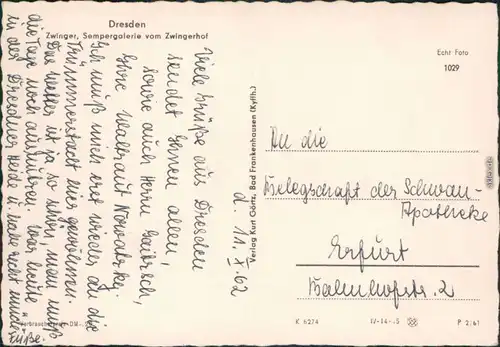 Dresden
Zwinger, Sempergalerie vom Zwingerhof
Echt Foto
1029
d. 11. X. 62
Viele Grüße aus Dresden
sendet Ihnen allen,
sowie auch Herrn
Ihre Waltraut
Ich muß mich erst wieder an die
Trümmerstadt hier gewöhnen.
Das Wetter ist ja so schön, man muß
die Tage noch ausnutzen. War heute
in der Dresdner Heide u. habe recht müde
Füße.
Verlag Kurt Görtz, Bad Frankenhausen (Kyffh.)
An die
Belegschaft der Schwan
Apotheke
Erfurt
Bahnhofstr. 2
K 6274
P 2/61